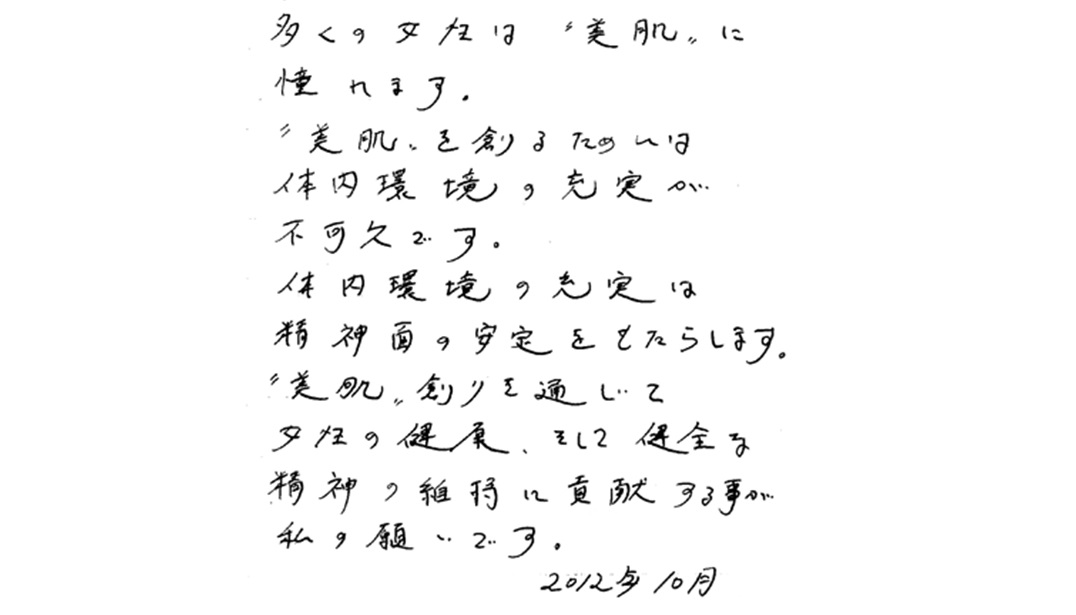 多くの女性は〝美肌〟に
憧れます。
〝美肌〟を創るためには
体内環境の充実が
不可欠です。
体内環境の充実は
精神面の安定をもたらします。
〝美肌〟創りを通じて
女性の健康、そして健全な
精神の維持に貢献する事が
私の願いです。
2012年10月